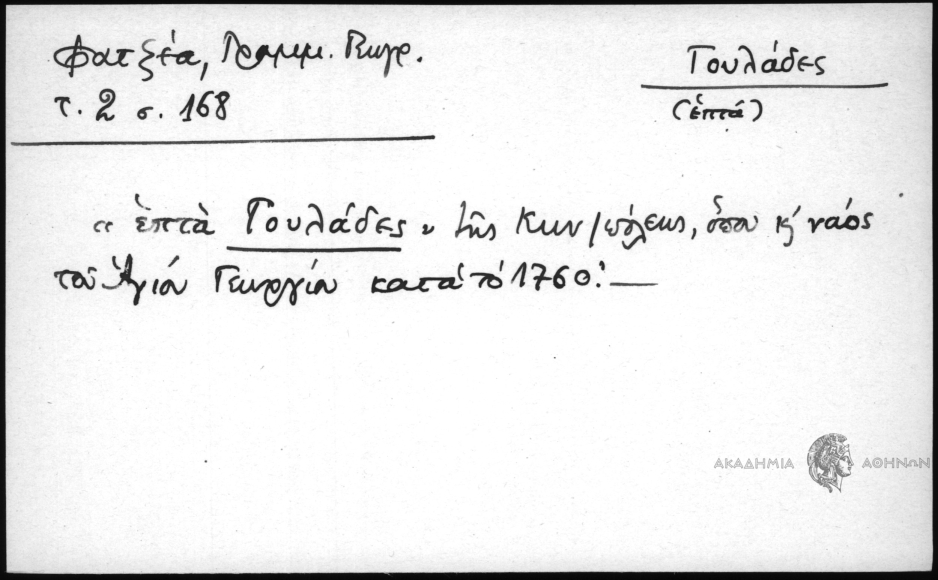 Φατζέα, Γραμμ. Πωγρ.
τ. 2 σ. 168
Γουλάδες
(ἑπτά)
« ἑπτὰ Γουλάδες » τῆς Κων/πόλεως, ὅπου κ' ναός
τοῦ Ἁγίου Γεωργίου κατά τό 1760.—
ΑΚΑΔΗΜΙΑ ΑΘΗΝΩΝ